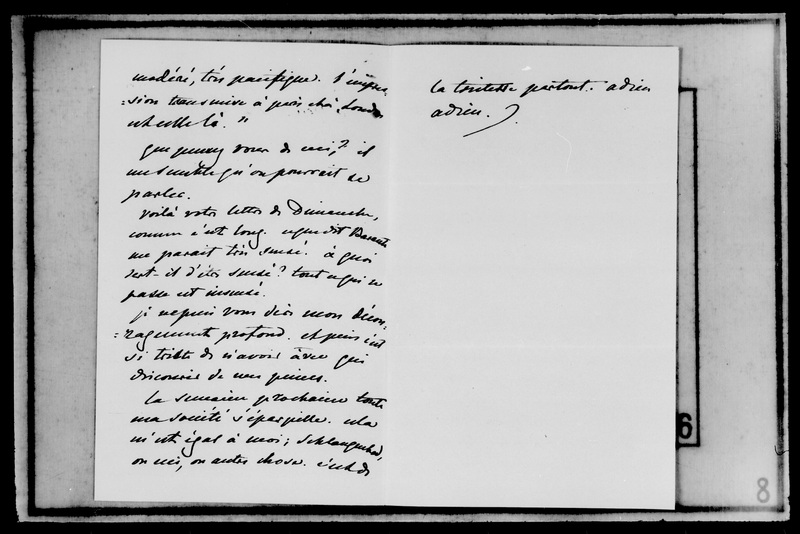 modéré, très pacifique. l'impres
=sion transmise à paris chez Londres
est celle là."
que pensez vous de ceci? il
me semble qu'on pourrait se
parler.
Voilà votre lettre de Dimanche,
comme c'est long. ce que dit Barante
me parait très sensé. à quoi
sert-il d'être sensé? tout ce qui se
passe est insensé.
je ne puis vous dire mon décou,
=ragement profond. et puis c'est
si triste de n'avoir à qui
discourir de mes peines.
La semaine prochaine toute
ma société s'éparpille. cela
m'est égal à moi; Schlangenbad,
ou ceci, ou autre chose. c'est de
la tristesse partout. adieu
adieu.
6
8